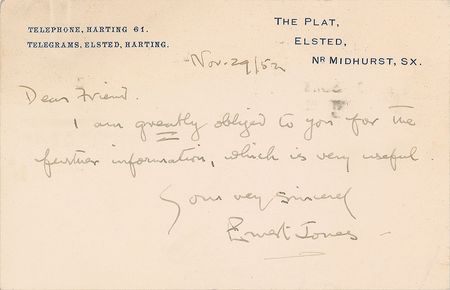 TELEPHONE, HARTING 61.
TELEGRAMS, ELSTED, HARTING.
THE PLAT,
ELSTED,
NR MIDHURST, SX.
Nov. 29/52
Dear Friend.
I am greatly obliged to you for the
further information, which is very useful.
Yours very sincerely
Ernest Jones